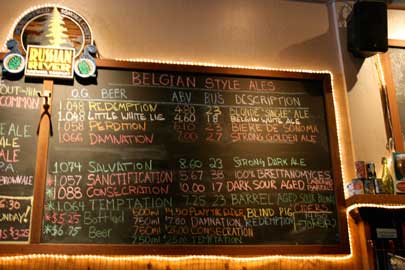 RUSSIAN
RIVER
BELGIAN STYLE ALES
O.G. BEER ABV BU'S DESCRIPTION
1.048 REDEMPTION 4.80 23 BLONDE "SINGLE" ALE
1.048 LITTLE WHITE LIE 4.80 18 BELGIAN WHITE ALE
1.058 PERDITION 6.10 23 BIERE DE SONOMA
1.066 DAMNATION 7.00 25 STRONG GOLDEN ALE
1.074 SALVATION 8.60 23 STRONG DARK ALE
1.057 SANCTIFICATION 5.67 33 100% BRETTANOMYCES
1.088 CONSECRATION 10.00 17 DARK SOUR AGED
1.064 TEMPTATION 7.25 BARREL AGED SOUR BLOND
$5.25 Bottled 500ml PLINY THE ELDER, BLIND PIG CIDERS
$6.25 Beer 750ml DAMNATION, REDEMPTION
750ml CONSECRATION
750ml TEMPTATION
COMMON
ALE
ALE
BROWN ALE